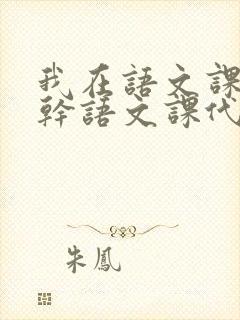 我在語文課
幹語文課代
朱鳳